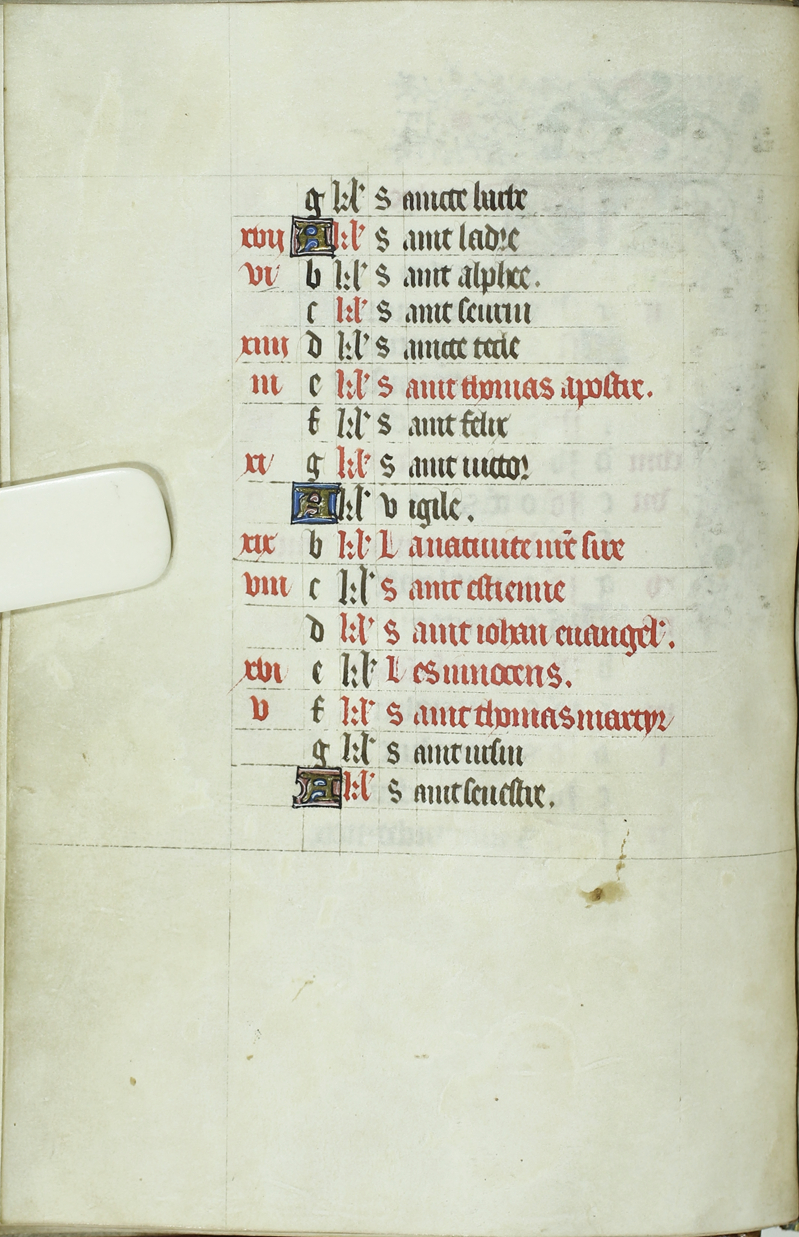 g kl' S aincte luce
xvii A kl' S aint ladre
vi b kl' S aint alphee.
c kl' S aint seurin
xiiii d kl' S aincte tecle
iii e kl' S aint thomas apostre.
f kl' S aint felix
xi g kl' S aint uictor
A kl' V igile.
xix b kl' L a natiuite nr̄e sire
viii c kl' S aint estienne
d kl' S aint iohan euangel'.
xvi e kl' L es innocens.
v f kl' S aint thomas martyr
g kl' S aint ursin
A kl' S aint seuestre.